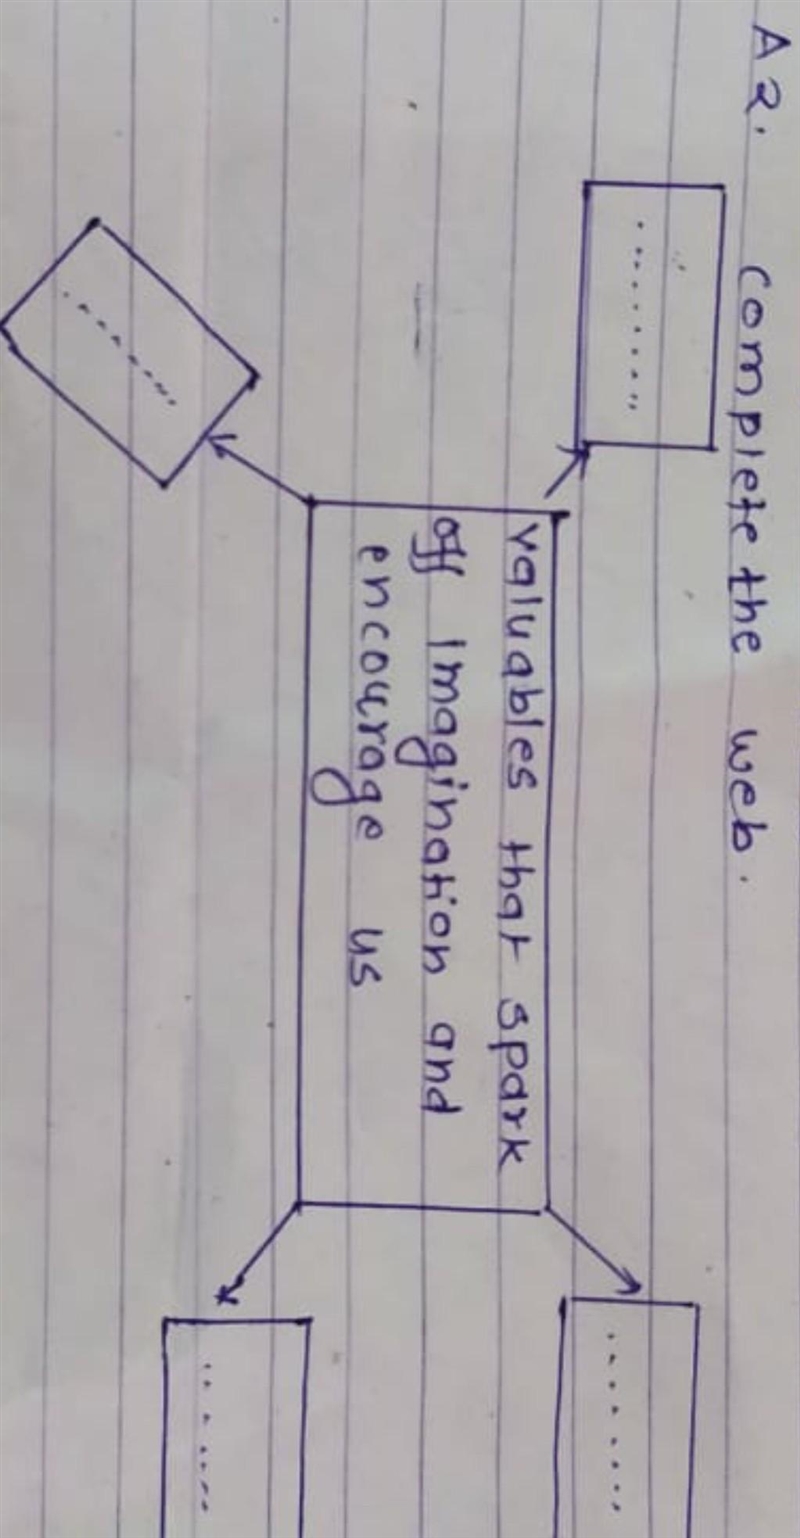 A2. Complete the web.
.........
.........
valuables that spark
off Imagination and
encourage us
.........
.........